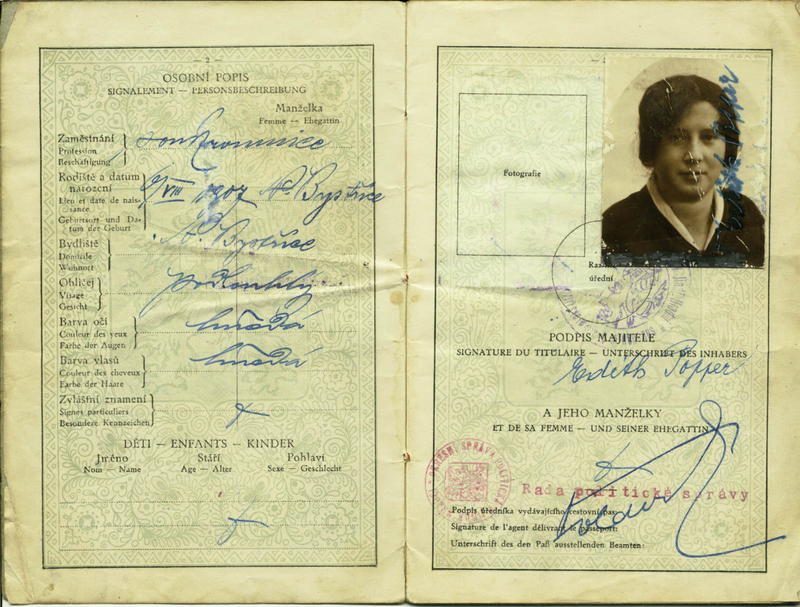 — 2 —
OSOBNÍ POPIS
SIGNALEMENT — PERSONSBESCHREIBUNG
Manželka
Femme — Ehegattin
Zaměstnání
Profession
Beschäftigung
Rodiště a datum narození
Lieu et date de naissance
Geburtsort und Datum der Geburt
VIII 1907 N. Bystřice
Bydliště
Domicile
Wohnort
N. Bystřice
Obličej
Visage
Gesicht
podlouhlý
Barva očí
Couleur des yeux
Farbe der Augen
hnědá
Barva vlasů
Couleur des cheveux
Farbe der Haare
hnědá
Zvláštní znamení
Signes particuliers
Besondere Kennzeichen
DĚTI — ENFANTS — KINDER
Jméno Stáří Pohlaví
Nom — Name Age — Alter Sexe — Geschlecht
Fotografie
úřední
PODPIS MAJITELE
SIGNATURE DU TITULAIRE — UNTERSCHRIFT DES INHABERS
Edith Popper
A JEHO MANŽELKY
ET DE SA FEMME — UND SEINER EHEGATTIN
Rada politické správy
Podpis úředníka vydávajícího cestovní pas:
Signature de l'agent délivrant le passeport:
Unterschrift des den Paß ausstellenden Beamten: